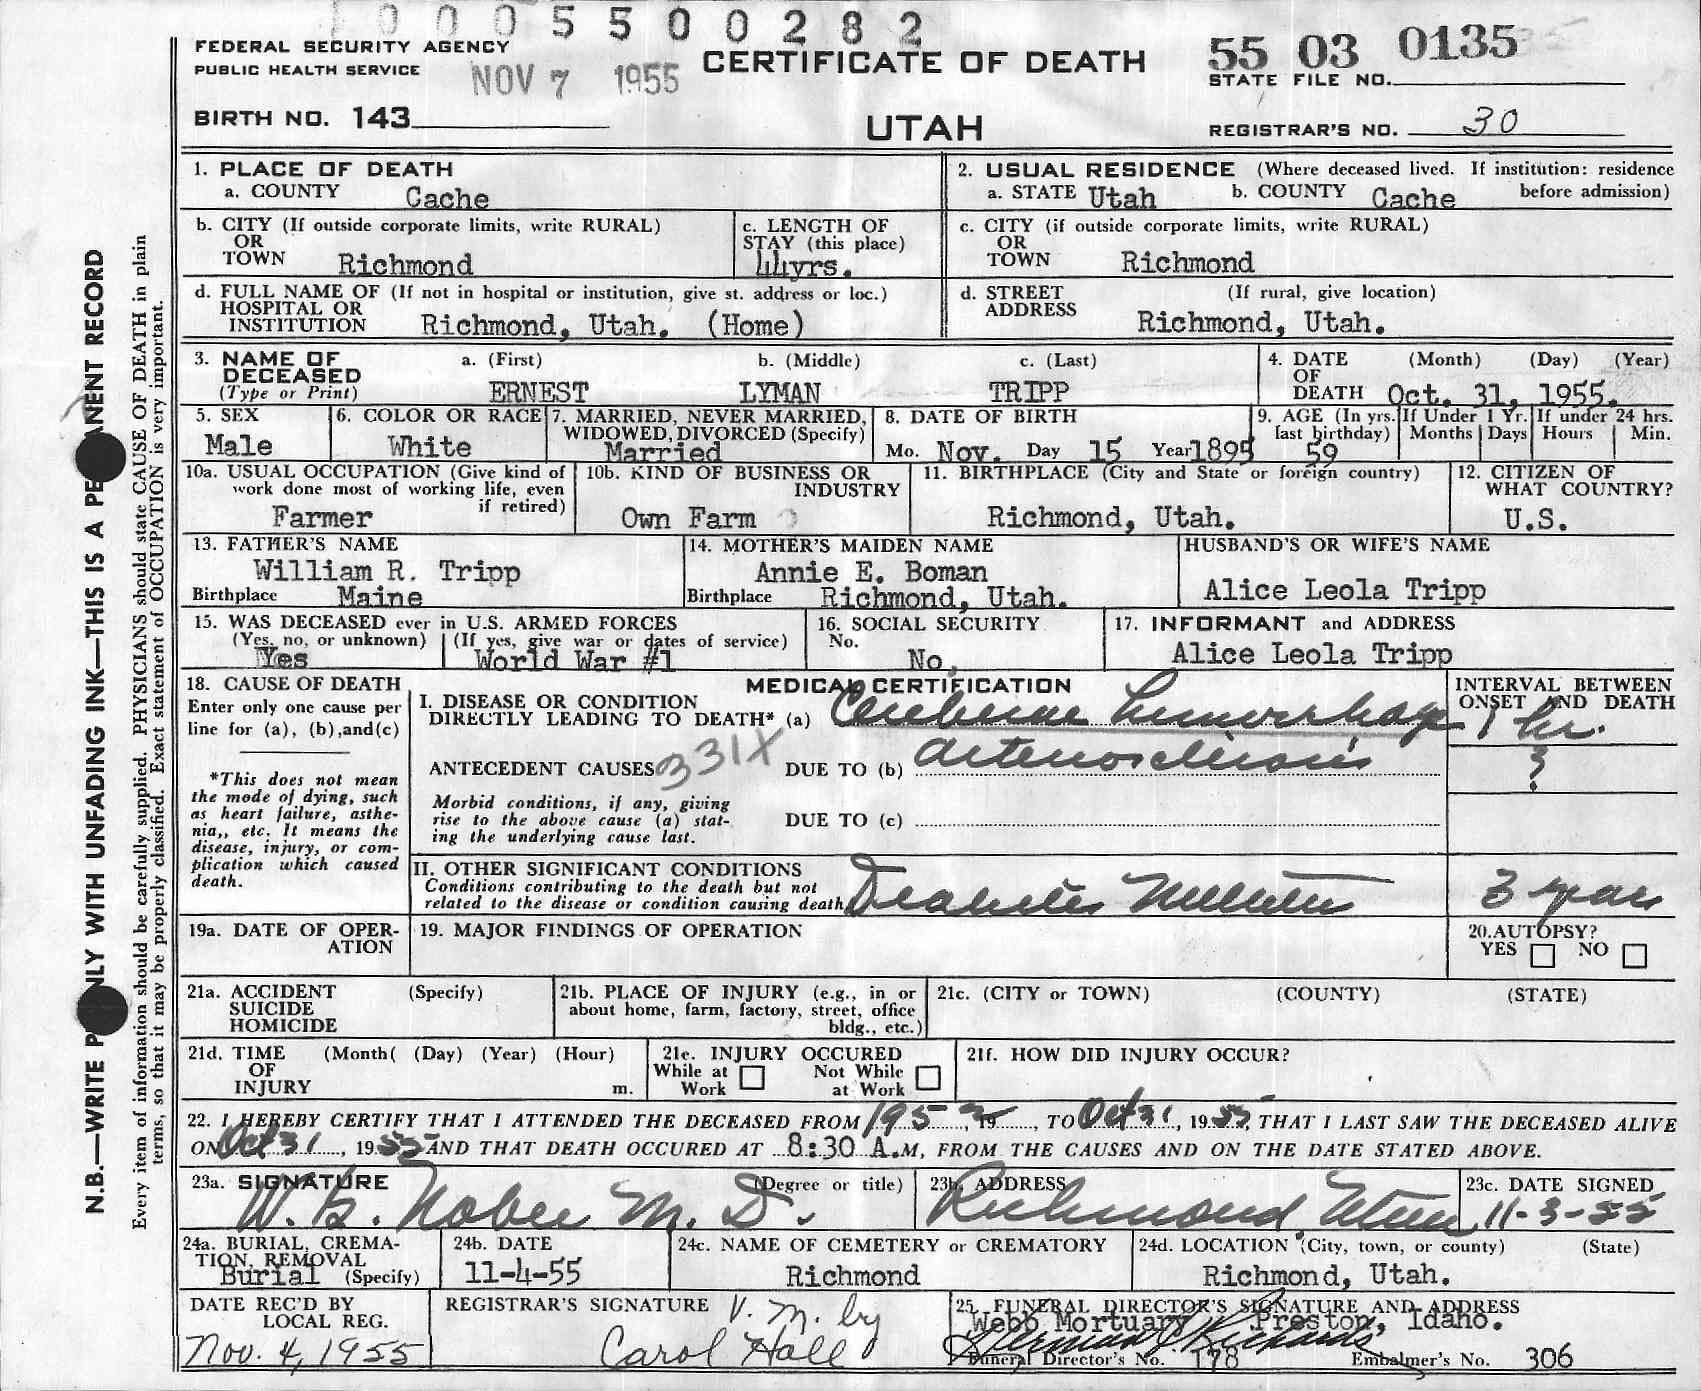 1 0 0 0 5 5 0 0 2 8 2
FEDERAL SECURITY AGENCY
PUBLIC HEALTH SERVICE
NOV 7 1955
CERTIFICATE OF DEATH
UTAH
55 03 0135
STATE FILE NO.
BIRTH NO. 143
REGISTRAR'S NO. 30
1. PLACE OF DEATH
a. COUNTY Cache
2. USUAL RESIDENCE (Where deceased lived. If institution: residence before admission)
a. STATE Utah b. COUNTY Cache
b. CITY (If outside corporate limits, write RURAL)
OR
TOWN Richmond
c. LENGTH OF
STAY (this place)
44yrs.
c. CITY (if outside corporate limits, write RURAL)
OR
TOWN Richmond
d. FULL NAME OF (If not in hospital or institution, give st. address or loc.)
HOSPITAL OR
INSTITUTION Richmond, Utah. (Home)
d. STREET (If rural, give location)
ADDRESS Richmond, Utah.
3. NAME OF DECEASED (Type or Print)
a. (First) b. (Middle) c. (Last)
ERNEST LYMAN TRIPP
4. DATE (Month) (Day) (Year)
OF
DEATH Oct. 31, 1955.
5. SEX
Male
6. COLOR OR RACE
White
7. MARRIED, NEVER MARRIED,
WIDOWED, DIVORCED (Specify)
Married
8. DATE OF BIRTH
Mo. Nov. Day 15 Year 1895
9. AGE (In yrs. last birthday)
59
If Under 1 Yr. If under 24 hrs.
Months Days Hours Min.
10a. USUAL OCCUPATION (Give kind of
work done most of working life, even
if retired)
Farmer
10b. KIND OF BUSINESS OR
INDUSTRY
Own Farm
11. BIRTHPLACE (City and State or foreign country)
Richmond, Utah.
12. CITIZEN OF
WHAT COUNTRY?
U.S.
13. FATHER'S NAME
William R. Tripp
Birthplace Maine
14. MOTHER'S MAIDEN NAME
Annie E. Boman
Birthplace Richmond, Utah.
HUSBAND'S OR WIFE'S NAME
Alice Leola Tripp
15. WAS DECEASED ever in U.S. ARMED FORCES
(Yes, no, or unknown) (If yes, give war or dates of service)
Yes World War #1
16. SOCIAL SECURITY
No.
No.
17. INFORMANT and ADDRESS
Alice Leola Tripp
18. CAUSE OF DEATH
Enter only one cause per
line for (a), (b),and(c)
*This does not mean
the mode of dying, such
as heart failure, asthe-
nia,, etc. It means the
disease, injury, or com-
plication which caused
death.
MEDICAL CERTIFICATION
I. DISEASE OR CONDITION
DIRECTLY LEADING TO DEATH* (a) Cerebral hemorrhage
INTERVAL BETWEEN
ONSET AND DEATH
1 hr.
ANTECEDENT CAUSES 331X DUE TO (b) arteriosclerosis
?
Morbid conditions, if any, giving
rise to the above cause (a) stat-
ing the underlying cause last.
DUE TO (c)
II. OTHER SIGNIFICANT CONDITIONS
Conditions contributing to the death but not
related to the disease or condition causing death
Diabetes Mellitus
3 years
19a. DATE OF OPER-
ATION
19. MAJOR FINDINGS OF OPERATION
20. AUTOPSY?
YES NO
21a. ACCIDENT (Specify)
SUICIDE
HOMICIDE
21b. PLACE OF INJURY (e.g., in or
about home, farm, factory, street, office
bldg., etc.)
21c. (CITY or TOWN) (COUNTY) (STATE)
21d. TIME (Month( (Day) (Year) (Hour)
OF
INJURY m.
21e. INJURY OCCURED
While at Work Not While at Work
21f. HOW DID INJURY OCCUR?
22. I HEREBY CERTIFY THAT I ATTENDED THE DECEASED FROM 1952, 19, TO Oct 31, 1955, THAT I LAST SAW THE DECEASED ALIVE
ON Oct 31, 1955 AND THAT DEATH OCCURED AT 8:30 A.M, FROM THE CAUSES AND ON THE DATE STATED ABOVE.
23a. SIGNATURE (Degree or title)
M. D.
23b. ADDRESS
Richmond, Utah
23c. DATE SIGNED
11-3-55
24a. BURIAL, CREMA-
TION, REMOVAL
Burial (Specify)
24b. DATE
11-4-55
24c. NAME OF CEMETERY or CREMATORY
Richmond
24d. LOCATION (City, town, or county) (State)
Richmond, Utah.
DATE REC'D BY
LOCAL REG.
Nov. 4, 1955
REGISTRAR'S SIGNATURE V. M. by
Carol Hall
25. FUNERAL DIRECTOR'S SIGNATURE AND ADDRESS
Webb Mortuary Preston, Idaho.
Funeral Director's No. 178 Embalmer's No. 306
N.B.—WRITE P NLY WITH UNFADING INK—THIS IS A PE ANENT RECORD
Every item of information should be carefully supplied. PHYSICIANS should state CAUSE OF DEATH in plain
terms, so that it may be properly classified. Exact statement of OCCUPATION is very important.